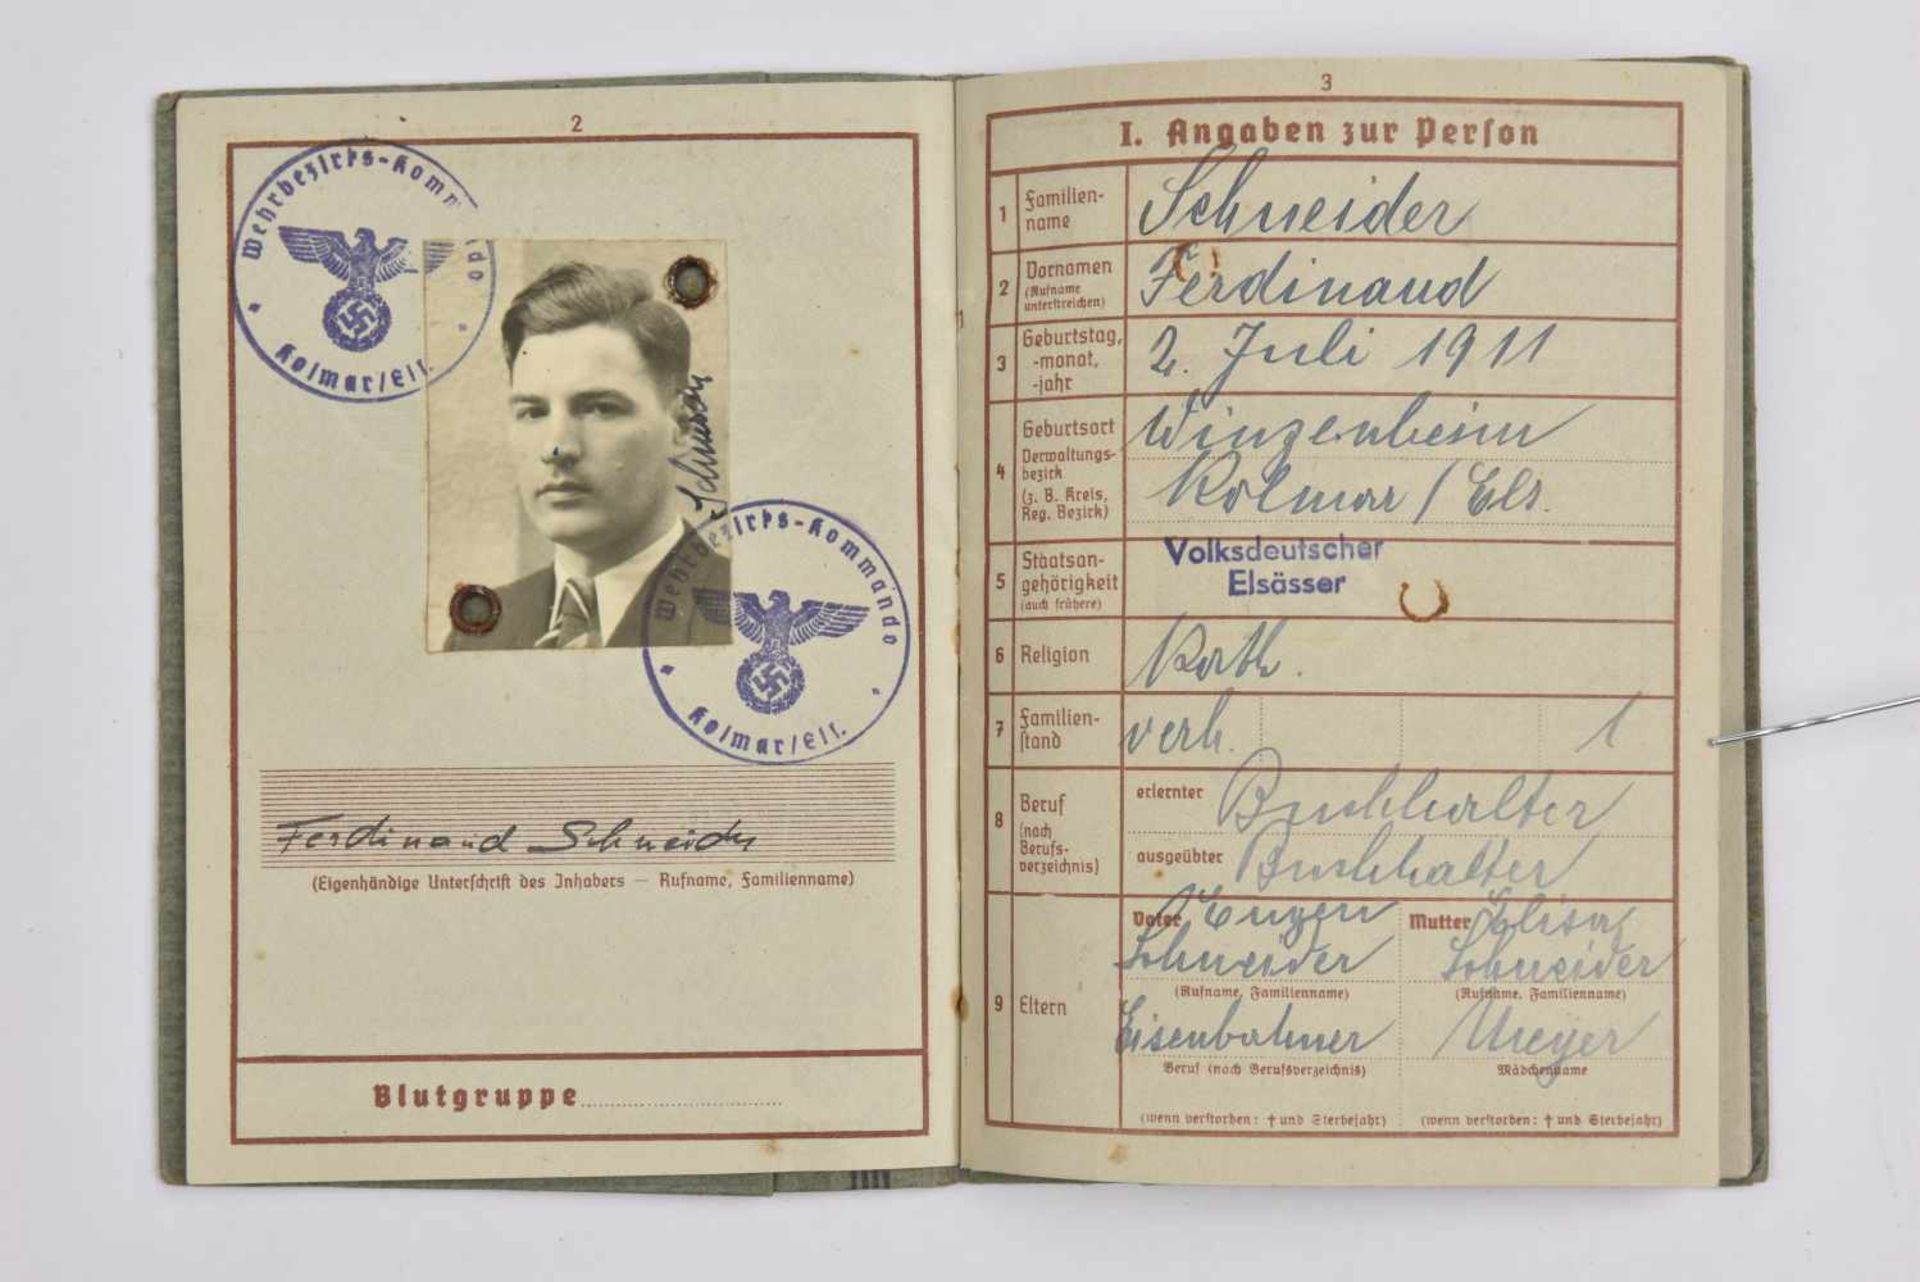 2
Wehrbezirks-Kommando
Kolmar/Els.
Wehrbezirks-Kommando
Kolmar/Els.
Ferdinand Schneider
(Eigenhändige Unterschrift des Inhabers — Rufname, Familienname)
Blutgruppe
3
I. Angaben zur Person
1 Familien-
name
Schneider
2 Vornamen
(Rufname
unterstreichen)
Ferdinand
3 Geburtstag,
-monat,
-jahr
2. Juli 1911
4 Geburtsort
Verwaltungs-
bezirk
(z. B. Kreis,
Reg. Bezirk)
Winzenheim
Kolmar / Els.
5 Staatsan-
gehörigkeit
(auch frühere)
Volksdeutscher
Elsässer
6 Religion
Kath.
7 Familien-
stand
verh. 1
8 Beruf
(nach
Berufs-
verzeichnis)
erlernter Buchhalter
ausgeübter Buchhalter
9 Eltern
Vater Eugen
Schneider
(Rufname, Familienname)
Eisenbahner
Beruf (nach Berufsverzeichnis)
(wenn verstorben: † und Sterbejahr)
Mutter Elisa
Schneider
(Rufname, Familienname)
Meyer
Mädchenname
(wenn verstorben: † und Sterbejahr)